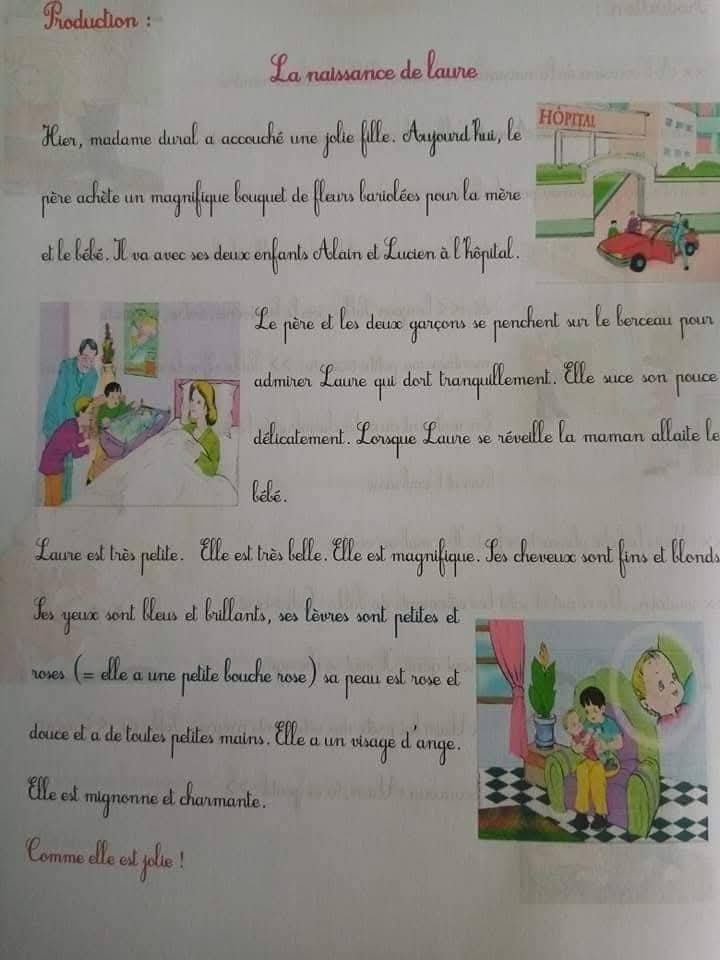 Production :
La naissance de laure
Hier, madame dural a accouché une jolie fille. Aujourd'hui, le
HÔPITAL
père achète un magnifique bouquet de fleurs bariolées pour la mère
et le bébé. Il va avec ses deux enfants Alain et Lucien à l'hôpital.
Le père et les deux garçons se penchent sur le berceau pour
admirer Laure qui dort tranquillement. Elle suce son pouce
délicatement. Lorsque Laure se réveille la maman allaite le
bébé.
Laure est très petite. Elle est très belle. Elle est magnifique. Ses cheveux sont fins et blonds
Ses yeux sont bleus et brillants, ses lèvres sont petites et
roses (= elle a une petite bouche rose) sa peau est rose et
douce et a de toutes petites mains. Elle a un visage d'ange.
Elle est mignonne et charmante.
Comme elle est jolie !